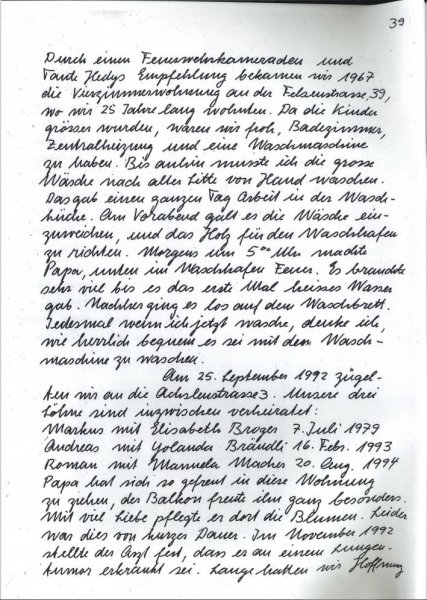 39
Durch einen Feuerwehrkameraden und
Tante Hedys Empfehlung bekamen wir 1967
die Vierzimmerwohnung an der Felsenstrasse, 39,
wo wir 25 Jahre lang wohnten. Da die Kinder
grösser wurden, waren wir froh, Badezimmer,
Zentralheizung und eine Waschmaschine
zu haben. Bis anhin musste ich die grosse
Wäsche nach alter Sitte von Hand waschen.
Das gab einen ganzen Tag Arbeit in der Wasch-
küche. Am Vorabend galt es die Wäsche ein-
zuweichen, und das Holz für den Waschhafen
zu richten. Morgens um 5⁰⁰ Uhr machte
Papa, unten im Waschhafen Feuer. Es brauchte
sehr viel bis es das erste Mal heisses Wasser
gab. Nachher ging es los auf dem Waschbrett.
Jedesmal wenn ich jetzt wasche, denke ich,
wie herrlich bequem es sei mit der Wasch-
maschine zu waschen.
Am 25. September 1992 zügel-
ten wir an die Achslenstrasse 3. Unsere drei
Söhne sind inzwischen verheiratet:
Markus mit Elisabeth Broger 7. Juli 1979
Andreas mit Yolanda Brändli 16. Febr. 1993
Roman mit Manuela Macher 20. Aug. 1994
Papa hat sich so gefreut in diese Wohnung
zu ziehen, der Balkon freute ihn ganz besonders.
Mit viel Liebe pflegte er dort die Blumen. Leider
war dies von kurzer Dauer. Im November 1992
stellte der Arzt fest, dass er an einem Lungen-
tumor erkrankt sei. Lange hatten wir Hoffnung